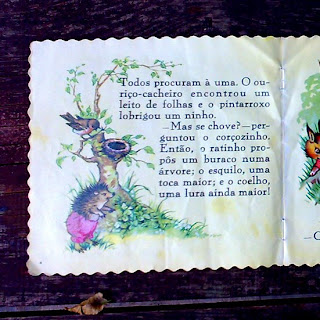 Todos procuram à uma. O ou-
riço-cacheiro encontrou um
leito de folhas e o pintarroxo
lobrigou um ninho.
—Mas se chove?—per-
guntou o corçozinho.
Então, o ratinho pro-
pôs um buraco numa
árvore; o esquilo, uma
toca maior; e o coelho,
uma lura ainda maior!